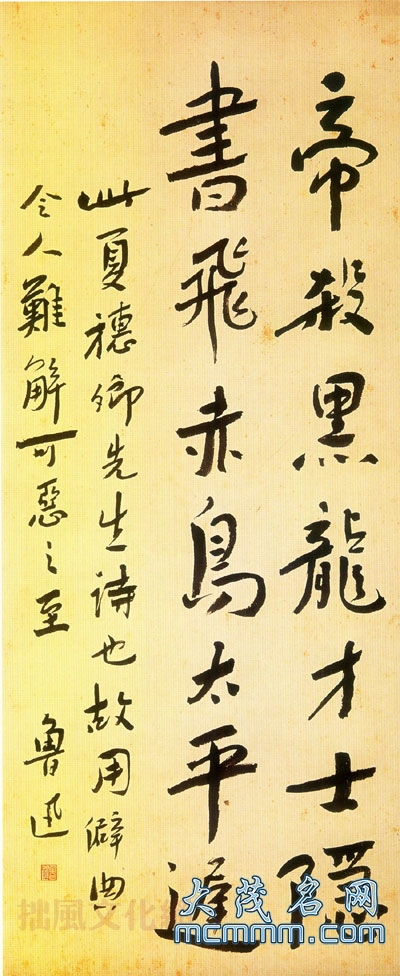 帝殺黑龍才士隱
書飛赤鳥太平遲
此夏穗卿先生詩也故用僻典
令人難解可惡之至
魯迅
拙風文化
大茂名网
mcmmm.com